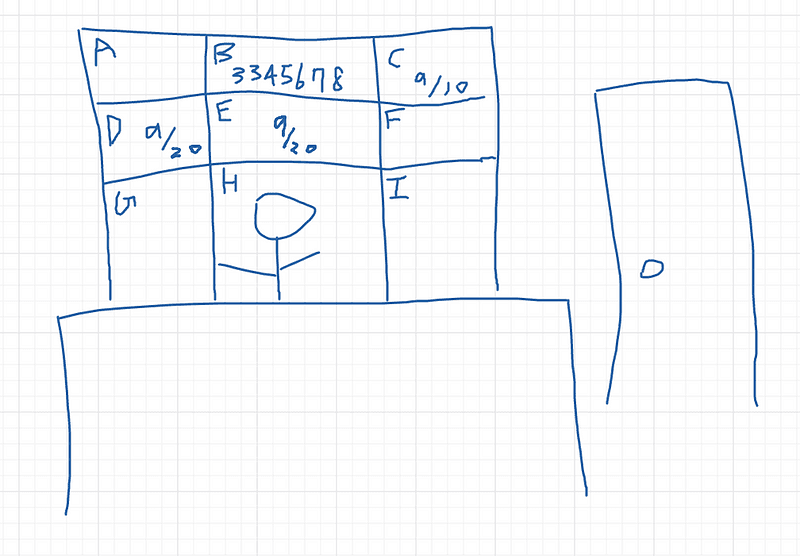 A
B
3345678
C
9/10
D 9/20
E
9/20
F
G
H
I